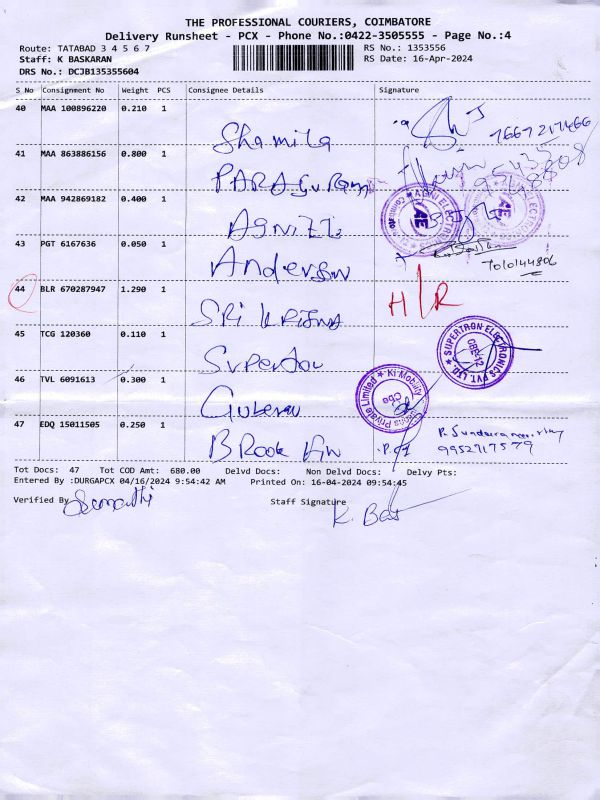 THE PROFESSIONAL COURIERS, COIMBATORE
Delivery Runsheet - PCX - Phone No.:0422-3505555 - Page No.:4
Route: TATABAD 3 4 5 6 7 RS No.: 1353556
Staff: K BASKARAN RS Date: 16-Apr-2024
DRS No.: DCJB135355604
S No Consignment No Weight PCS Consignee Details Signature
40 MAA 100896220 0.210 1
Shamila 7667217466
41 MAA 863886156 0.800 1
PARAGURAM
42 MAA 942869182 0.400 1
AGNIEL
43 PGT 6167636 0.050 1
Anderson 7010144806
44 BLR 670287947 1.290 1 H/R
SRI KRISHNA
45 TCG 120360 0.110 1
SUPERTRON ELECTRONICS PVT. LTD. CBE-12
46 TVL 6091613 0.300 1
Ki Mobility Private Limited Cbe
47 EDQ 15011505 0.250 1
Brook 9952717579
Tot Docs: 47 Tot COD Amt: 680.00 Delvd Docs: Non Delvd Docs: Delvy Pts:
Entered By :DURGAPCX 04/16/2024 9:54:42 AM Printed On: 16-04-2024 09:54:45
Verified By Sumathi Staff Signature K. Bas